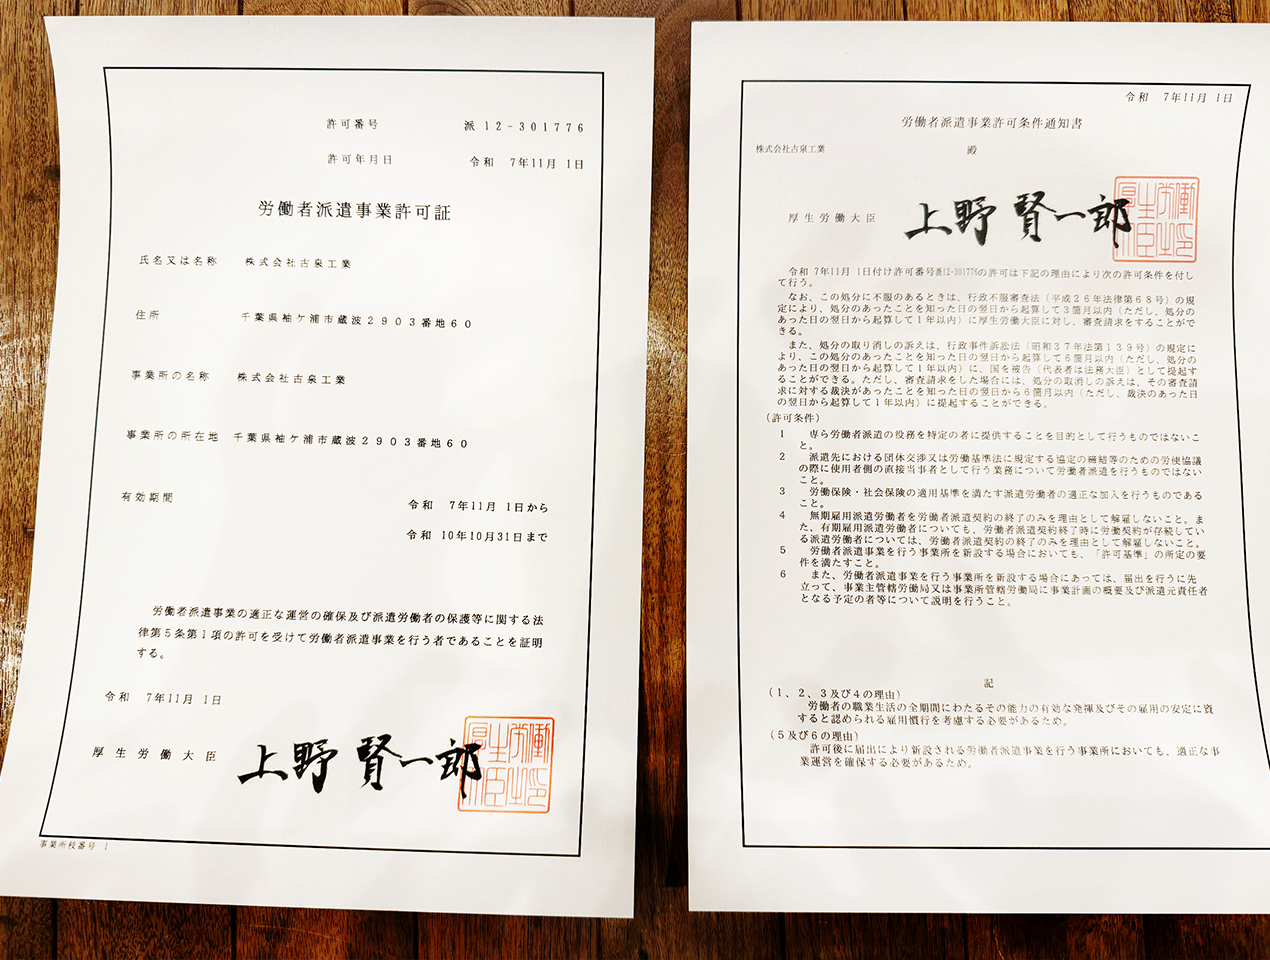 許可番号 派12-301776
許可年月日 令和 7年11月 1日
労働者派遣事業許可証
氏名又は名称 株式会社古泉工業
住所 千葉県袖ケ浦市蔵波2903番地60
事業所の名称 株式会社古泉工業
事業所の所在地 千葉県袖ケ浦市蔵波2903番地60
有効期間 令和 7年11月 1日から
令和 10年10月31日まで
労働者派遣事業の適正な運営の確保及び派遣労働者の保護等に関する法
律第5条第1項の許可を受けて労働者派遣事業を行う者であることを証明
する。
令和 7年11月 1日
厚生労働大臣 上野賢一郎
厚生労働大臣印
事業所枝番号 1
令和 7年11月 1日
労働者派遣事業許可条件通知書
株式会社古泉工業 殿
厚生労働大臣 上野賢一郎
厚生労働大臣印
令和 7年11月 1日付け許可番号派12-301776の許可は下記の理由により次の許可条件を付し
て行う。
なお、この処分に不服のあるときは、行政不服審査法(平成26年法律第68号)の規
定により、処分のあったことを知った日の翌日から起算して3箇月以内(ただし、処分の
あった日の翌日から起算して1年以内)に厚生労働大臣に対し、審査請求をすることがで
きる。
また、処分の取り消しの訴えは、行政事件訴訟法(昭和37年法第139号)の規定に
より、この処分のあったことを知った日の翌日から起算して6箇月以内(ただし、処分の
あった日の翌日から起算して1年以内)に、国を被告(代表者は法務大臣)として提起す
ることができる。ただし、審査請求をした場合には、処分の取消しの訴えは、その審査請
求に対する裁決があったことを知った日の翌日から6箇月以内(ただし、裁決のあった日
の翌日から起算して1年以内)に提起することができる。
(許可条件)
1 専ら労働者派遣の役務を特定の者に提供することを目的として行うものではないこ
と。
2 派遣先における団体交渉又は労働基準法に規定する協定の締結等のための労使協議
の際に使用者側の直接当事者として行う業務について労働者派遣を行うものではない
こと。
3 労働保険・社会保険の適用基準を満たす派遣労働者の適正な加入を行うものである
こと。
4 無期雇用派遣労働者を労働者派遣契約の終了のみを理由として解雇しないこと。ま
た、有期雇用派遣労働者についても、労働者派遣契約終了時に労働契約が存続してい
る派遣労働者については、労働者派遣契約の終了のみを理由として解雇しないこと。
5 労働者派遣事業を行う事業所を新設する場合においても、「許可基準」の所定の要
件を満たすこと。
6 また、労働者派遣事業を行う事業所を新設する場合にあっては、届出を行うに先
立って、事業主管轄労働局又は事業所管轄労働局に事業計画の概要及び派遣元責任者
となる予定の者等について説明を行うこと。
記
(1、2、3及び4の理由)
労働者の職業生活の全期間にわたるその能力の有効な発揮及びその雇用の安定に資
すると認められる雇用慣行を考慮する必要があるため。
(5及び6の理由)
許可後に届出により新設される労働者派遣事業を行う事業所においても、適正な事
業運営を確保する必要があるため。